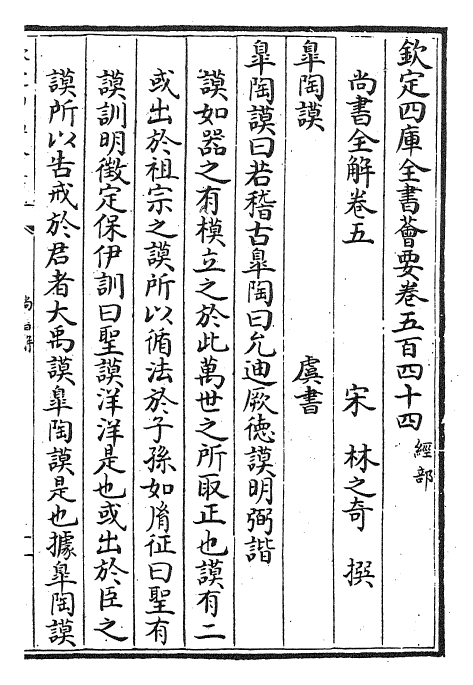 欽定四庫全書薈要卷五百四十四
經部
尚書全解卷五
宋 林之奇 撰
皐陶謨
虞書
皐陶謨曰若稽古皐陶曰允迪厥德謨明弼諧
謨如器之有模立之於此萬世之所取正也謨有二
或出於祖宗之謨所以循法於子孫如胤征曰聖有
謨訓明徵定保伊訓曰聖謨洋洋是也或出於臣之
謨所以告戒於君者大禹謨皐陶謨是也據皐陶謨